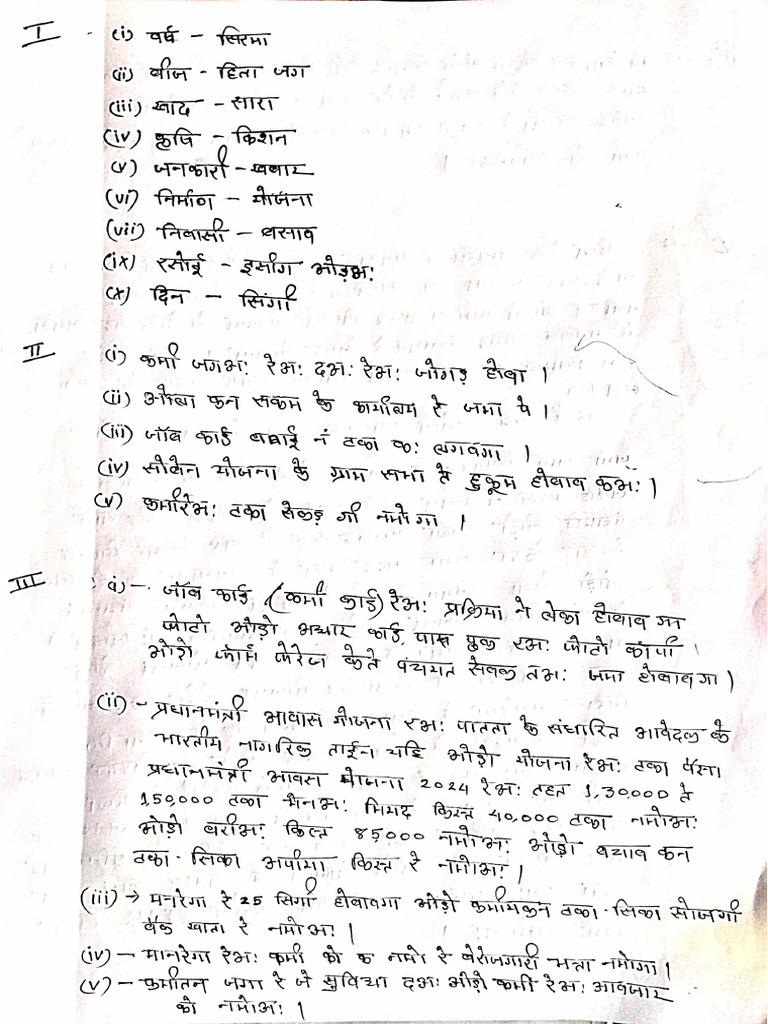 I (i) वर्ष - सिरमा
(ii) बीज - हिता जग
(iii) खाद - सारा
(iv) कृषि - किशन
(v) जनकारी - खबार
(vi) निर्माण - योजना
(vii) निवासी - बसाव
(ix) रसोई - इसींग ओड़अः
(x) दिन - सिंगी
II (i) कमी जगअः रेअः दअः रेअः जोगड़ होबा ।
(ii) ओला कन सकम के कार्यालय रे जमा पे ।
(iii) जॉब कार्ड बनाई नं टका कः लगवगा ।
(iv) सोबेन योजना के ग्राम सभा ते हुकूम होबाव कअः ।
(v) कमीरेअः टका सेकड़ गी नमोगा ।
III (i) - जॉब कार्ड (कमी कार्ड) रेअः प्रक्रिया ने लेका होबाव गा
फोटो ओड़ो अधार कार्ड, पास बुक रअः फोटो कॉपी
ओड़ो फॉर्म पेरेज केते पंचयत सेवक तअः जमा होबावगा )
(ii) - प्रधानमंत्री आवास योजना रअः पातता के संधारित आवेदक के
भारतीय नागरिक ताईन यदि ओड़ो योजना रेअः टका पैसा
प्रधानमंत्री आवस योजना 2024 रेअः तहत 1,30,000 ते
1,50,000 टका मेनअः मियद किस्त 40,000 टका नमोअः
ओड़ो बरीअः किस्त 85,000 नमोअः ओड़ो बचाव कन
टका-सिका अपीया किस्त रे नमोअः ।
(iii) → मनरेगा रे 25 सिंगी होबावगा ओड़ो कमीयकन टका-सिका सोजगी
बैंक खाता रे नमोअः ।
(iv) - मानरेगा रेअः कमी को क नमो रे बेरोजगारी भत्ता नमोगा ।
(v) - कमीतन जगा रे जे सुविधा दअः ओड़ो कमी रेअः आवजार
को नमोअः ।